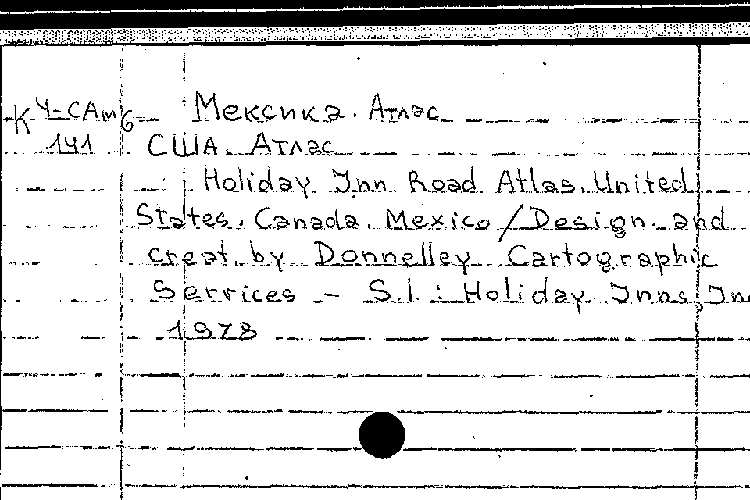 К Ч-САт6 Мексика. Атлас
141 США. Атлас
Holiday Inn Road Atlas. United
States. Canada. Mexico / Design. and
creat by Donnelley Cartographic
Services - S.l. : Holiday Inns, In
1978